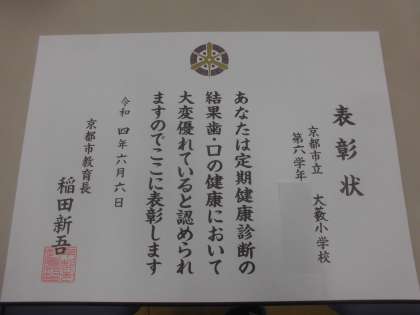 表彰状
京都市立 大藪小学校
第六学年
あなたは定期健康診断の
結果歯・口の健康において
大変優れていると認められ
ますのでここに表彰します
令和四年六月六日
京都市教育長
稲田新吾